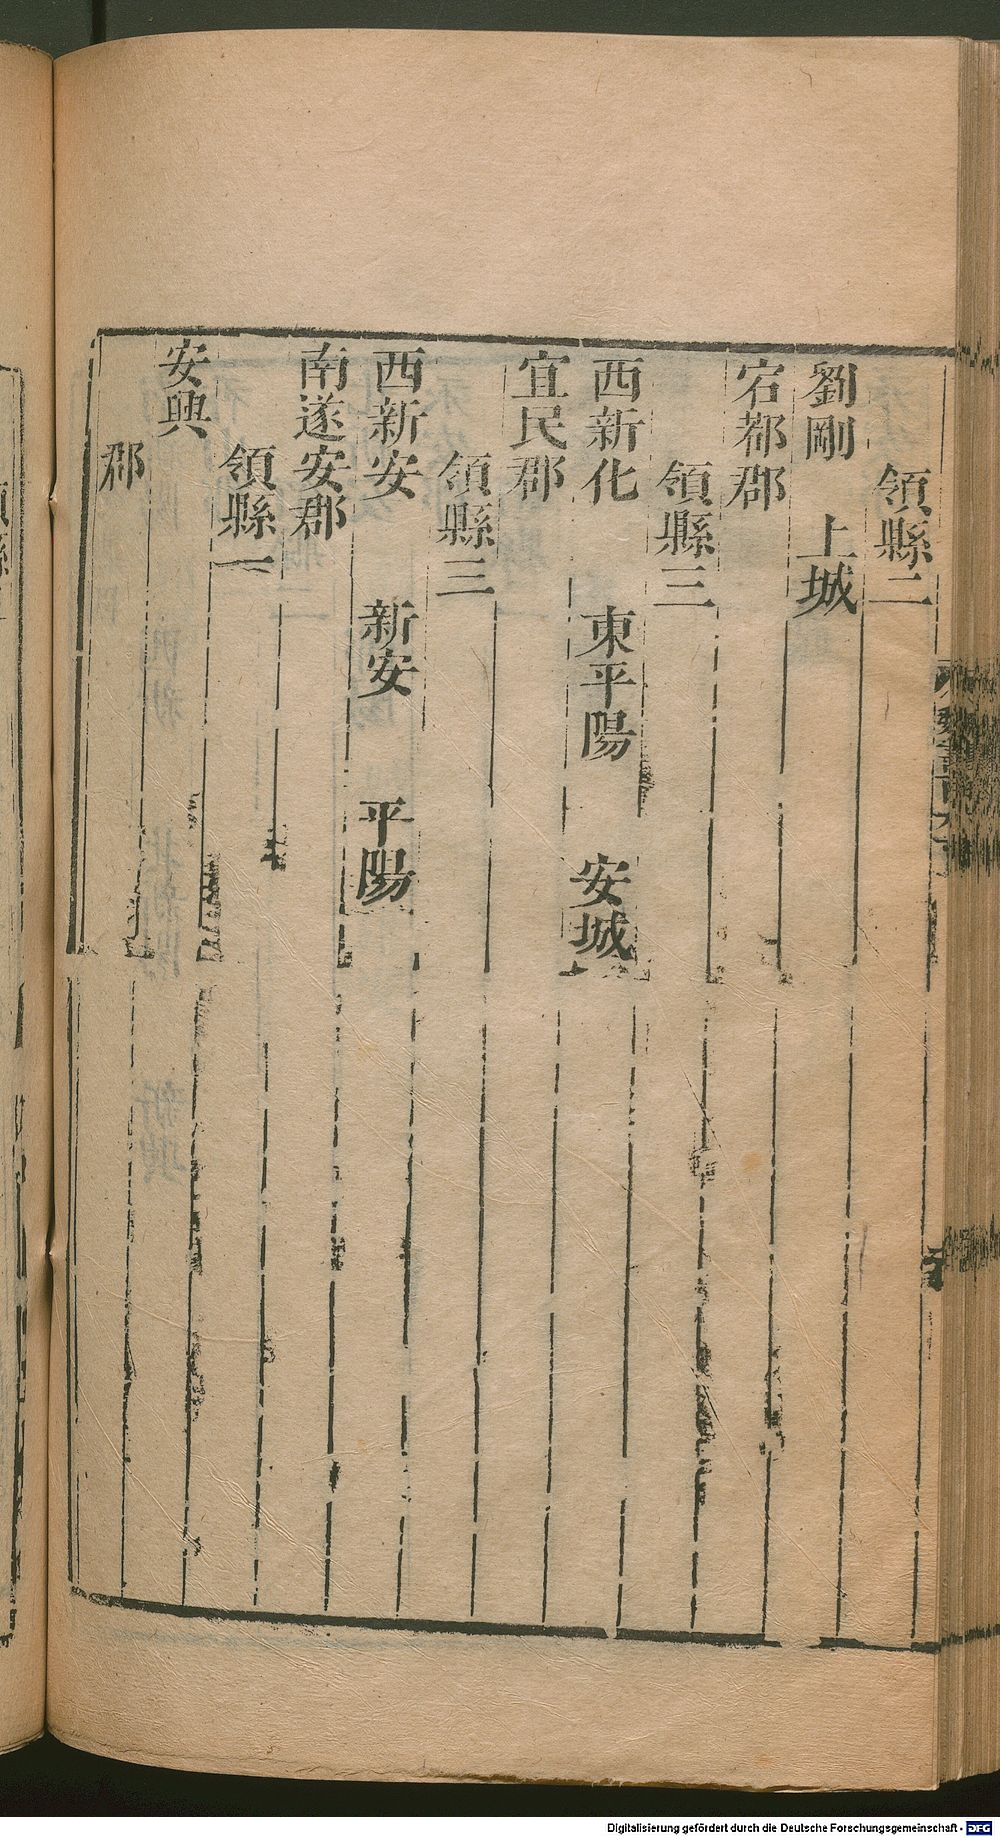 領縣二
劉剛 上城
宕都郡
領縣三
西新化 東平陽 安城
宜民郡
領縣三
西新安 新安 平陽
南遂安郡
領縣一
安興
郡
Digitalisierung gefördert durch die Deutsche Forschungsgemeinschaft - DFG